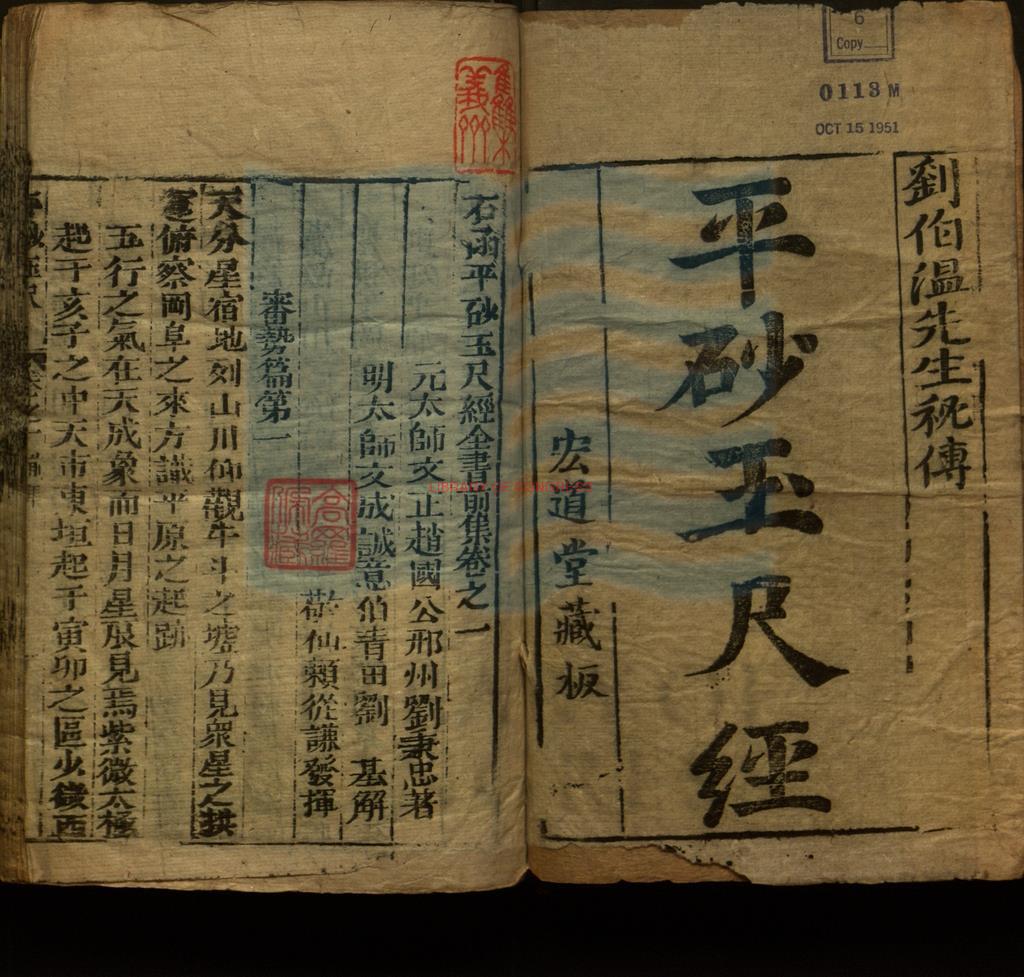 6
Copy
0113 M
OCT 15 1951
劉伯溫先生祕傳
平砂玉尺經
宏道堂藏板
石函平砂玉尺經全書前集卷之一
元太師文正趙國公邢州劉秉忠著
明太師文成誠意伯青田劉 基解
敬仙賴從謙發揮
審勢篇第一
天分星宿地列山川仰觀牛斗之墟乃見衆星之拱
俯察岡阜之來方識平原之起跡
五行之氣在天成象而日月星辰見焉紫微太極
起于亥子之中天市東垣起于寅卯之區少微西
LIBRARY OF CONGRESS